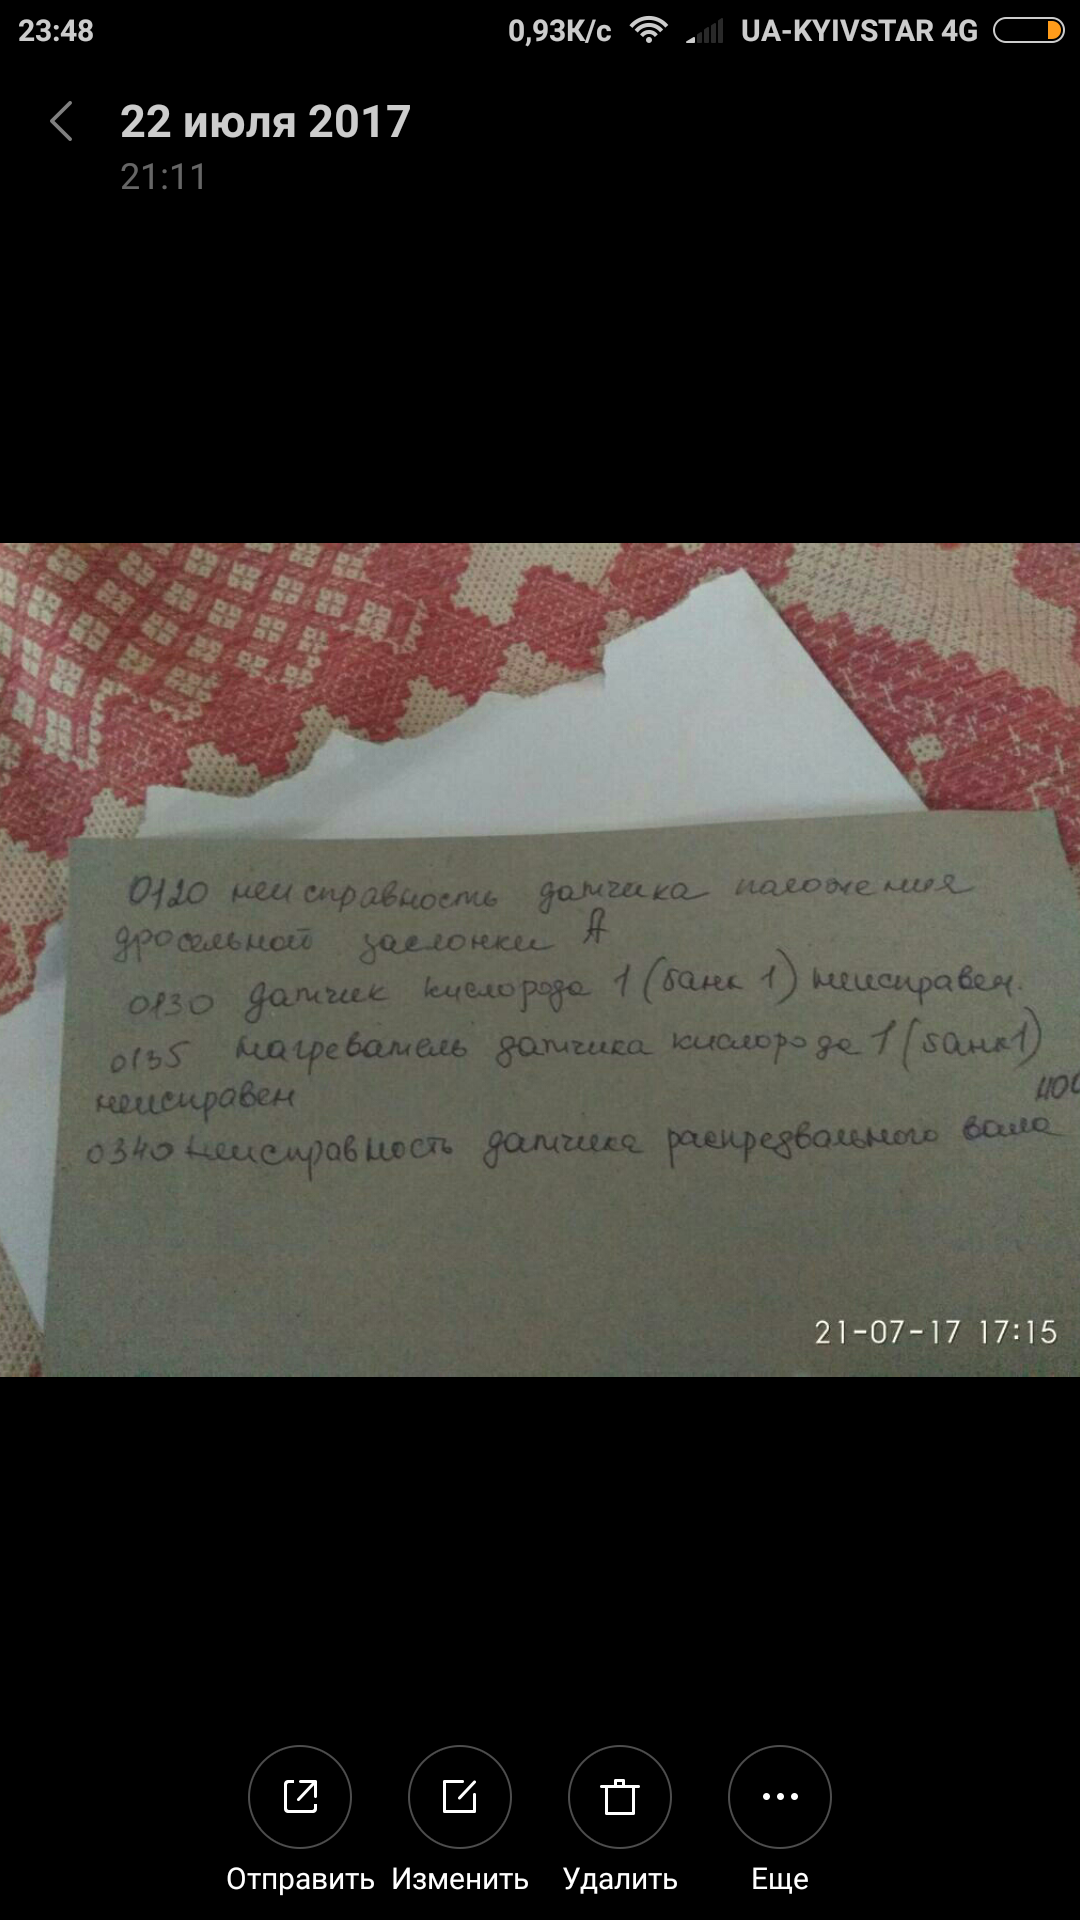 23:48
0,93К/с
UA-KYIVSTAR 4G
22 июля 2017
21:11
0120 неисправность датчика положения
дросельной заслонки А
0130 датчик кислорода 1 (банк 1) неисправен.
0135 нагреватель датчика кислорода 1 (банк1)
неисправен
0340 неисправность датчика распредвального вала
21-07-17 17:15
Отправить
Изменить
Удалить
Еще